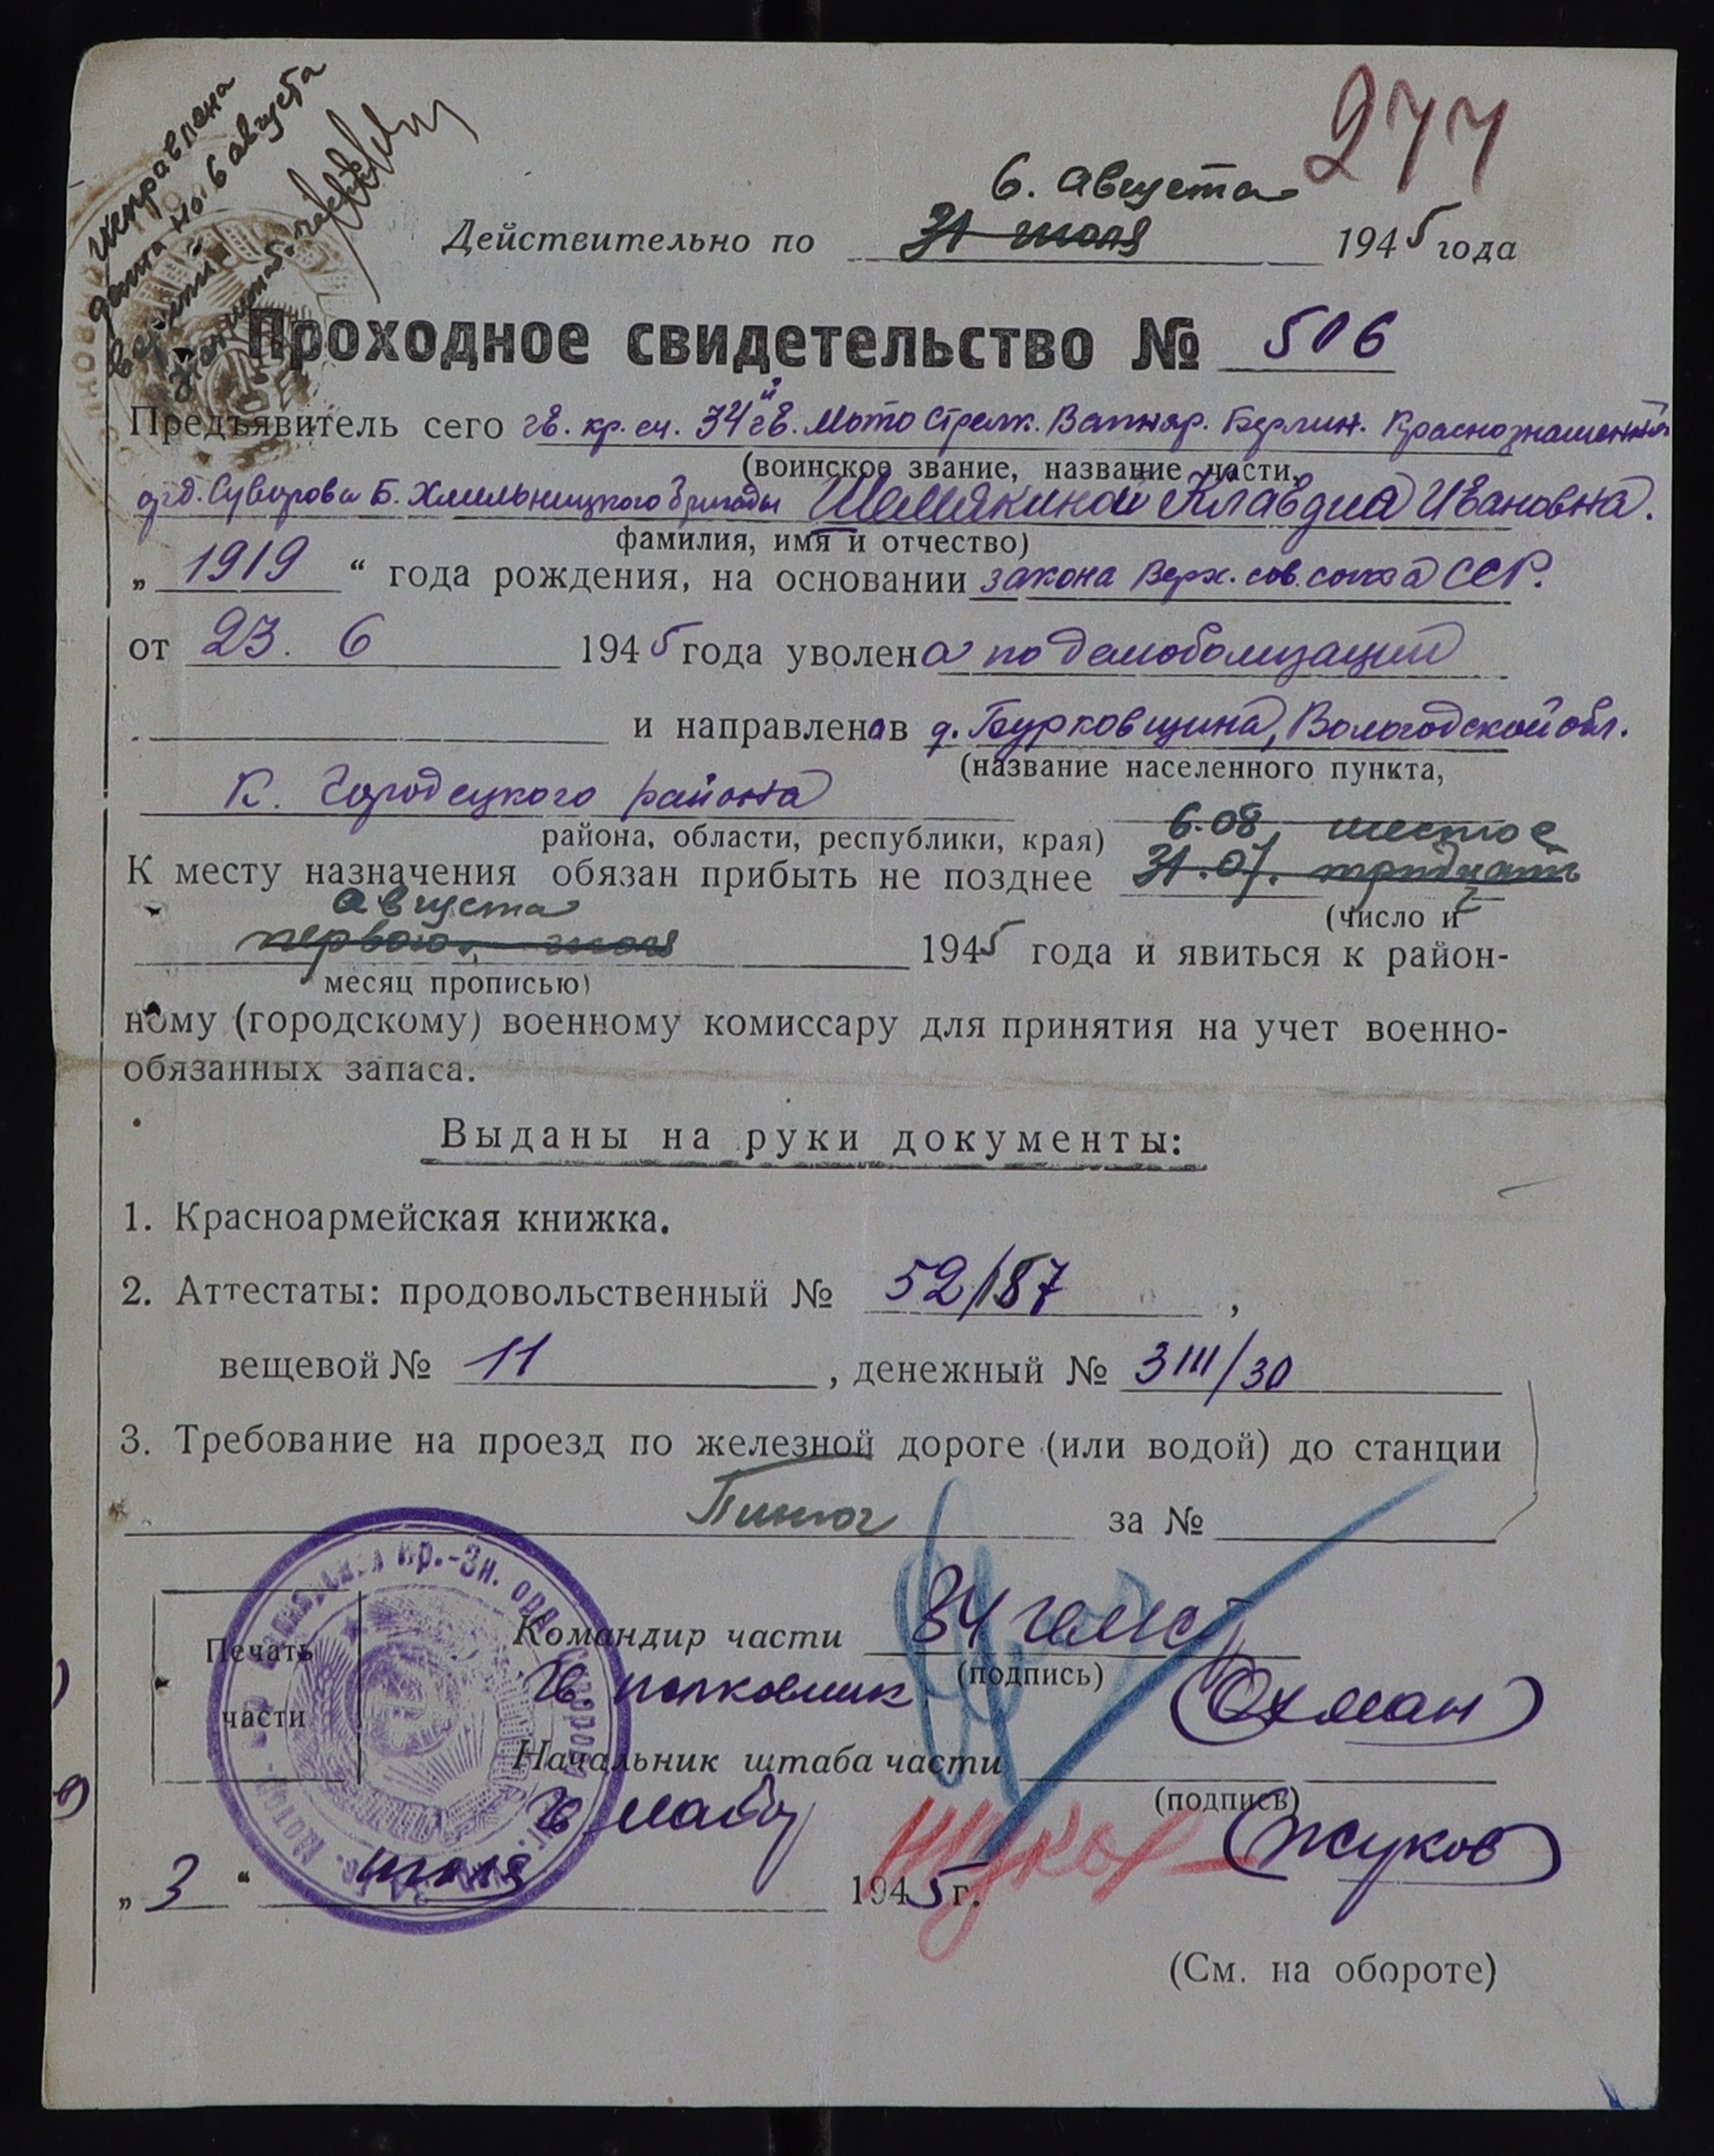 исправлена
дата на 6 августа
верный
277
6. августа
Действительно по 31 июля 1945 года
Проходное свидетельство № 506
Предъявитель сего гв. кр. сч. 34й гв. Мото Стрелк. Вапняр. Берлин. Краснознаменной
(воинское звание, название части,
орд. Суворова Б. Хмильницкого бригады Шемякиной Клавдиа Ивановна.
фамилия, имя и отчество)
„ 1919 “ года рождения, на основании закона Верх. сов. союза ССР.
от 23. 6 1945 года уволена по демоболизации
и направлена в д. Бурковщина, Вологодской обл.
(название населенного пункта,
К. Городецкого района
района, области, республики, края)
6.08, шестое
К месту назначения обязан прибыть не позднее 31.07. тридцать
(число и
августа
первого, июля 1945 года и явиться к район-
месяц прописью)
ному (городскому) военному комиссару для принятия на учет военно-
обязанных запаса.
Выданы на руки документы:
1. Красноармейская книжка.
2. Аттестаты: продовольственный № 52/187,
вещевой № 11, денежный № 3111/30
3. Требование на проезд по железной дороге (или водой) до станции
Пинюг за №
Печать
части
Командир части 34 гвмсб
(подпись)
Гв. полковник (Охман)
Начальник штаба части
(подпись)
Гв. майор (Жуков)
Жуков
„ 3 “ июля 1945 г.
(См. на обороте)